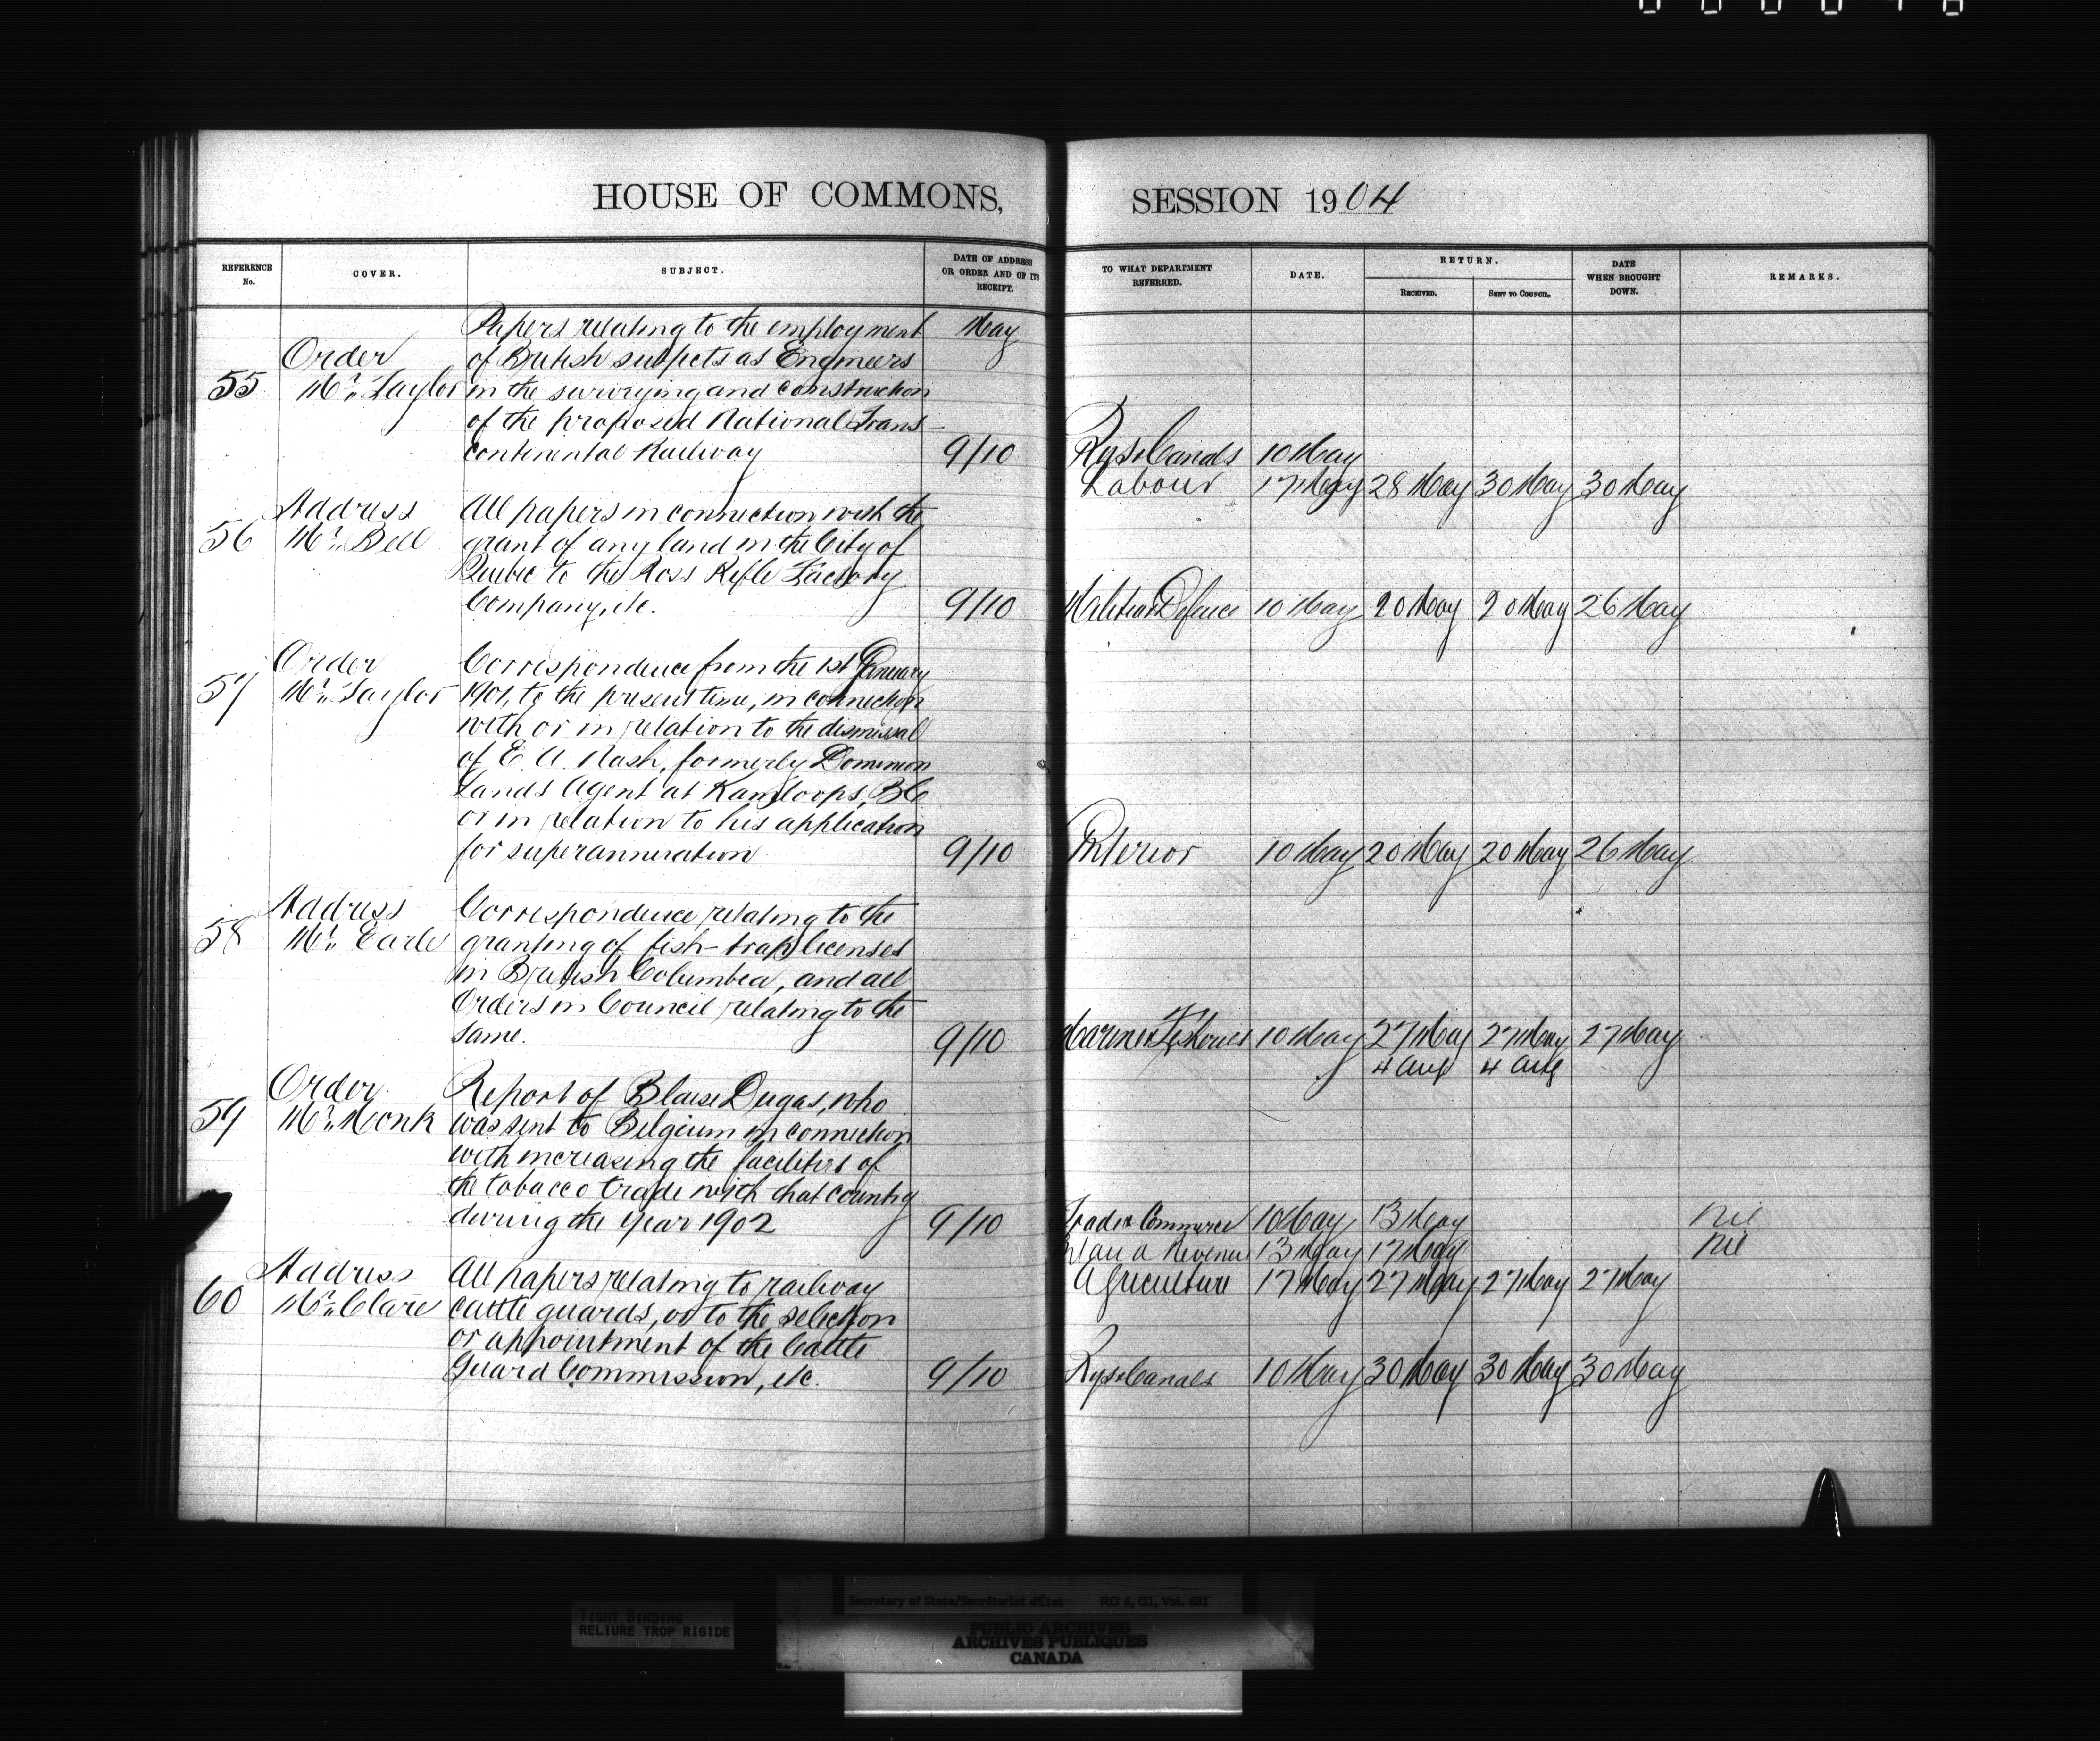 HOUSE OF COMMONS, SESSION 1904
REFERENCE No.
COVER.
SUBJECT.
DATE OF ADDRESS OR ORDER AND OF ITS RECEIPT.
TO WHAT DEPARTMENT REFERRED.
DATE.
RETURN.
RECEIVED.
SENT TO COUNCIL.
DATE WHEN BROUGHT DOWN.
REMARKS.
Papers relating to the employment May
Order of British subjects as Engineers
55 Mr. Taylor in the surveying and construction
of the proposed National Trans-
continental Railway 9/10 Rys & Canals 10 May
Labour 17 May 28 May 30 May 30 May
Address All papers in connection with the
56 Mr. Bell grant of any land in the City of
Quebec to the Ross Rifle Factory
Company, etc. 9/10 Militia & Defence 10 May 20 May 20 May 26 May
Order Correspondence from the 1st January
57 Mr. Taylor 1901, to the present time, in connection
with or in relation to the dismissal
of E. A. Nash, formerly Dominion
Lands Agent at Kamloops, BC
or in relation to his application
for superannuation 9/10 Interior 10 May 20 May 20 May 26 May
Address Correspondence relating to the
58 Mr. Earle granting of fish-trap licenses
in British Columbia, and all
Orders in Council relating to the
same. 9/10 Marine & Fisheries 10 May 27 May 27 May 27 May
4 Aug 4 Aug
Order Report of Blaise Dugas, who
59 Mr. Monk was sent to Belgium in connection
with increasing the facilities of
the tobacco trade with that country
during the year 1902 9/10 Trade & Commerce 10 May 13 May nil
Inland Revenue 13 May 17 May nil
Address All papers relating to railway Agriculture 17 May 27 May 27 May 27 May
60 Mr. Clare cattle guards, or to the selection
or appointment of the Cattle
Guard Commission, etc. 9/10 Rys & Canals 10 May 30 May 30 May 30 May
TIGHT BINDING
RELIURE TROP RIGIDE
Secretary of State/Secrétariat d'État RG 6, G1, Vol. 681
PUBLIC ARCHIVES
ARCHIVES PUBLIQUES
CANADA